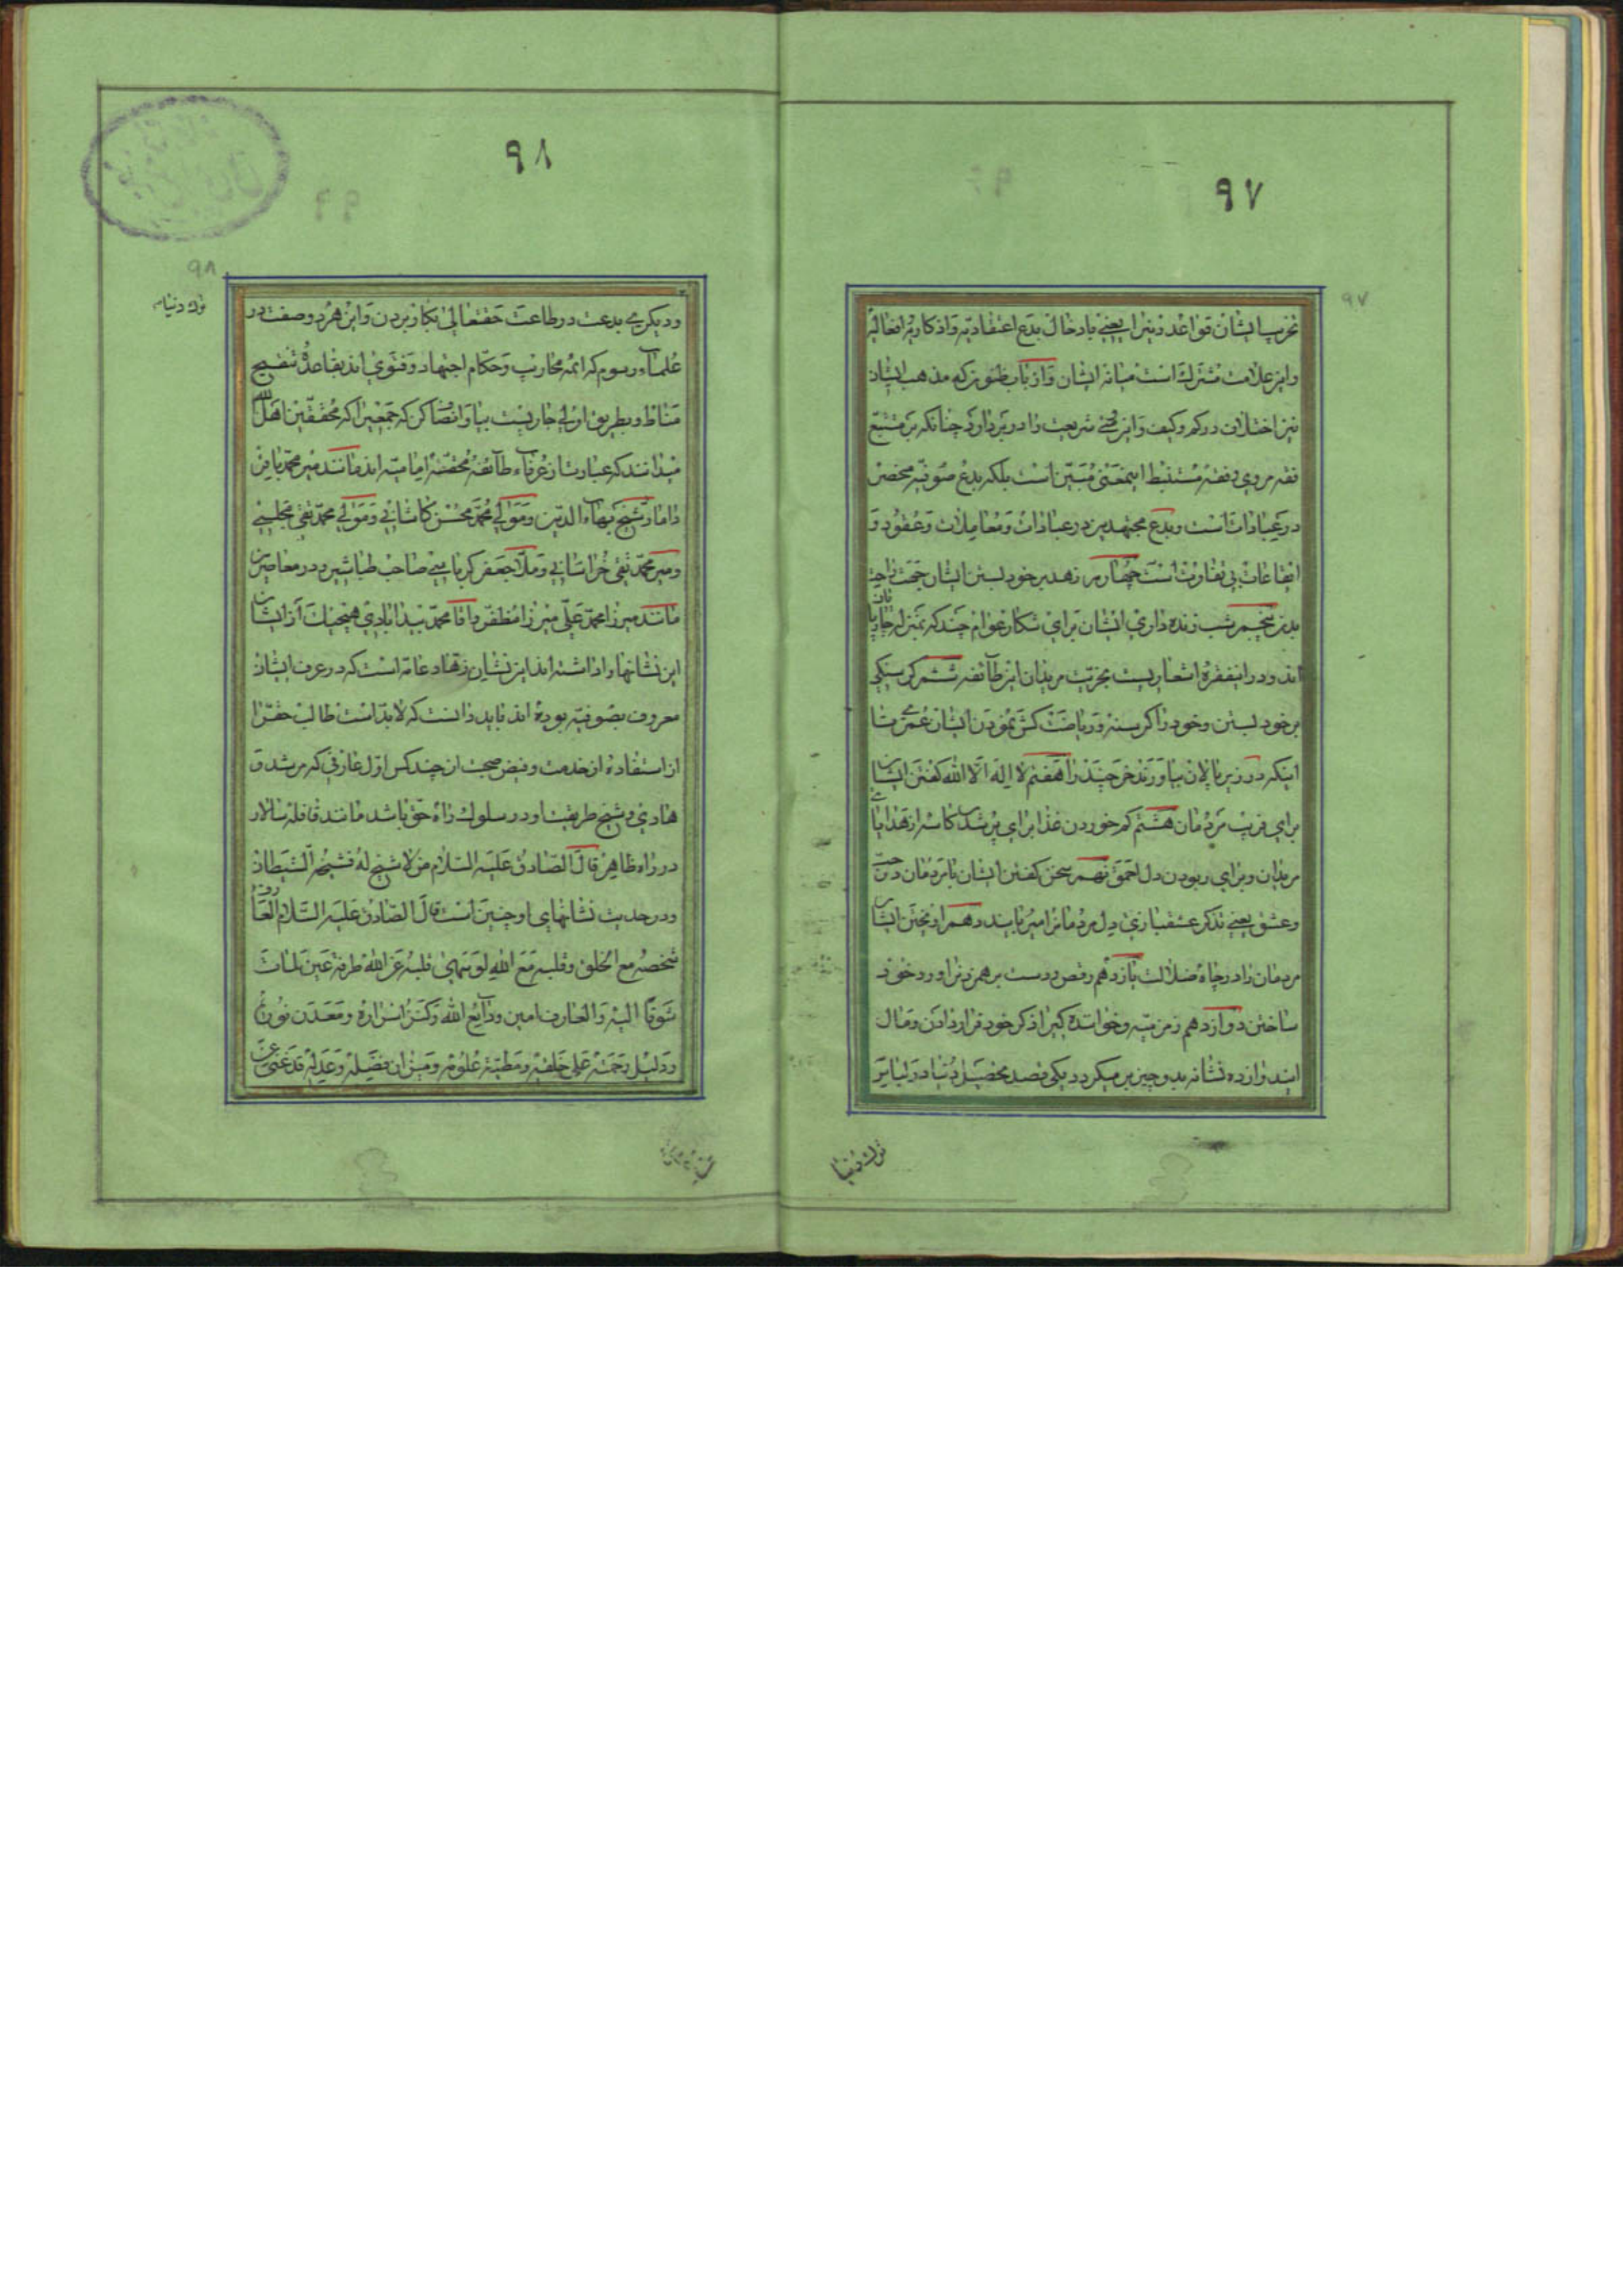 ٩٧
٩٧
تخریب ایشان قواعد دین را یعنی بادخال بدع اعتقادیه و اذکاریه و افعالیه
و این علامت مشترک است میانه ایشان و ارباب ظنون که مذهب ایشان
نیز اختلاف در کم و کیف و این شریعت را در بر دارد چنانکه بر متتبع
فقه مروی و فقه مستنبط اینمعنی مبین است بلکه بدع صوفیه محض
در عبادات است و بدع مجتهدین در عبادات و معاملات و عقود و
ایقاعات بی تفاوت است چهارم زهد بر خود بستن ایشان جهت راحت
بدن پنجم شب زنده داری ایشان برای شکار عوام چند که بمنزله چارپایان
اند و در اینفقره اشعاریست بخریت مریدان این طایفه ششم گرسنگی
بر خود بستن و خود را گرسنه و ریاضت کش نمودن ایشان عمری تا
اینکه در زیر پالان بیاورند خر چند را هفتم لا اله الا الله گفتن ایشان
برای فریب مردمان هشتم کم خوردن غذا برای پر شدن کاسه از هدایای
مریدان و برای ربودن دل احمق نهم سخن گفتن ایشان با مردمان در حب
و عشق یعنی تذکر عشقبازی دل مردمانرا میربایند دهم اویختن ایشان
مردمان را در چاه ضلالت یازدهم رقص و دست بر هم زدنرا ورد خود
ساختن دوازدهم زمزمه و خوانندگی را ذکر خود قرار دادن و مآل
ایندوازده نشانه بدو چیز بر میگردد یکی قصد تحصیل دنیا در لباس
ترک دنیا
٩٨
٩٨
ترک دنیا
و دیگری بدعت در طاعت حقتعالی بکار بردن و این هر دو صفت در
علماء رسوم که ائمه محاریب و حکام اجتهاد و فتوی اند بقاعده تنقیح
مناط و بطریق اولی جاریست بیا و انصاف کن که جمعیرا که محققین اهل الله
میدانند که عبارت از عرفاء طائفه محقه امامیه اند مانند میر محمد باقر
داماد و شیخ بهاء الدین و مولی محمد محسن کاشانی و مولی محمد تقی مجلسی
و میر محمد تقی خراسانی و ملا جعفر صاحب طباشیر و در معاصرین
مانند میرزا محمد علی میرزا مظفر و اقا محمد بیدابادی هیچیک از ایشان
این نشانها را داشته اند این نشان زهاد عامه است که در عرف ایشان
معروف بصوفیه بوده اند باید دانست که لابد است طالب حق را
از استفاده از خدمت و فیض صحبت از چند کس اول عارفی که مرشد و
هادی و شیخ طریقت او در سلوک راه حق باشد مانند قافله سالار
در راه ظاهر قال الصادق علیه السلام من لا شیخ له فشیخه الشیطان
و در حدیث نشانهای او چنین است قال الصادق علیه السلام العارف
شخصه مع الخلق و قلبه مع الله لو سهی قلبه عن الله طرفة عین لمات
شوقا الیه و العارف امین ودایع الله و کنز اسراره و معدن نوره
و دلیل رحمته علی خلقه و مطیة علومه و میزان فضله و عدله قد غنی عن